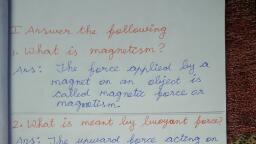 I Answer the following
1. What is magnetism?
Ans: The force applied by a
magnet on an object is
called magnetic force or
magnetism.
2. What is meant by buoyant force?
Ans: The upward force acting on